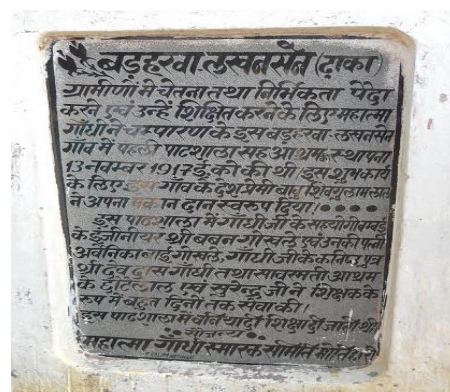 बड़हरवा लखनसेन (ढ़ाका)
ग्रामीणों में चेतना तथा निर्भिकता पैदा
करने एवं उन्हें शिक्षित करने के लिए महात्मा
गाँधी ने चम्पारण के इस बड़हरवा-लखनसेन
गाँव में पहली पाठशाला सह आश्रम स्थापना
13-नवम्बर 1917 ई. को की थी। इस शुभ कार्य
के लिए इस गाँव के देश प्रेमी बाबू शिवगुलाम लाल
ने अपना मकान दान स्वरुप दिया।
इस पाठशाला में गाँधीजी के सहयोगी बम्बई
के इंजीनीयर श्री बबन गोखले एवं उनकी पत्नी
अवंतिका बाई गोखले, गाँधीजी के कनिष्ठ पुत्र
श्री देवदास गाँधी तथा साबरमती आश्रम
के छोटेलाल एवं सुरेन्द्रजी ने शिक्षक के
रुप में बहुत दिनों तक सेवा की।
इस पाठशाला में बुनियादी शिक्षा दी जाती थी।
सौजन्य
महात्मा गाँधी स्मारक समिति मोतिहारी